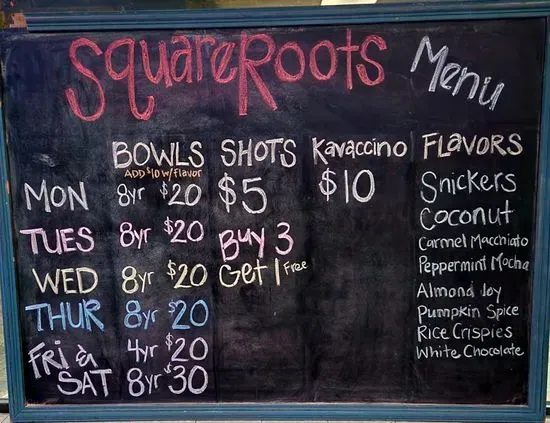 SquareRoots Menu
BOWLS SHOTS Kavaccino FLAVORS
ADD $10 w/flavor
MON 8yr $20 $5 $10
TUES 8yr $20 Buy 3
WED 8yr $20 Get 1 Free
THUR 8yr $20
FRI & 4yr $20
SAT 8yr $30
Snickers
Coconut
Carmel Macchiato
Peppermint Mocha
Almond Joy
Pumpkin Spice
Rice Crispies
White Chocolate